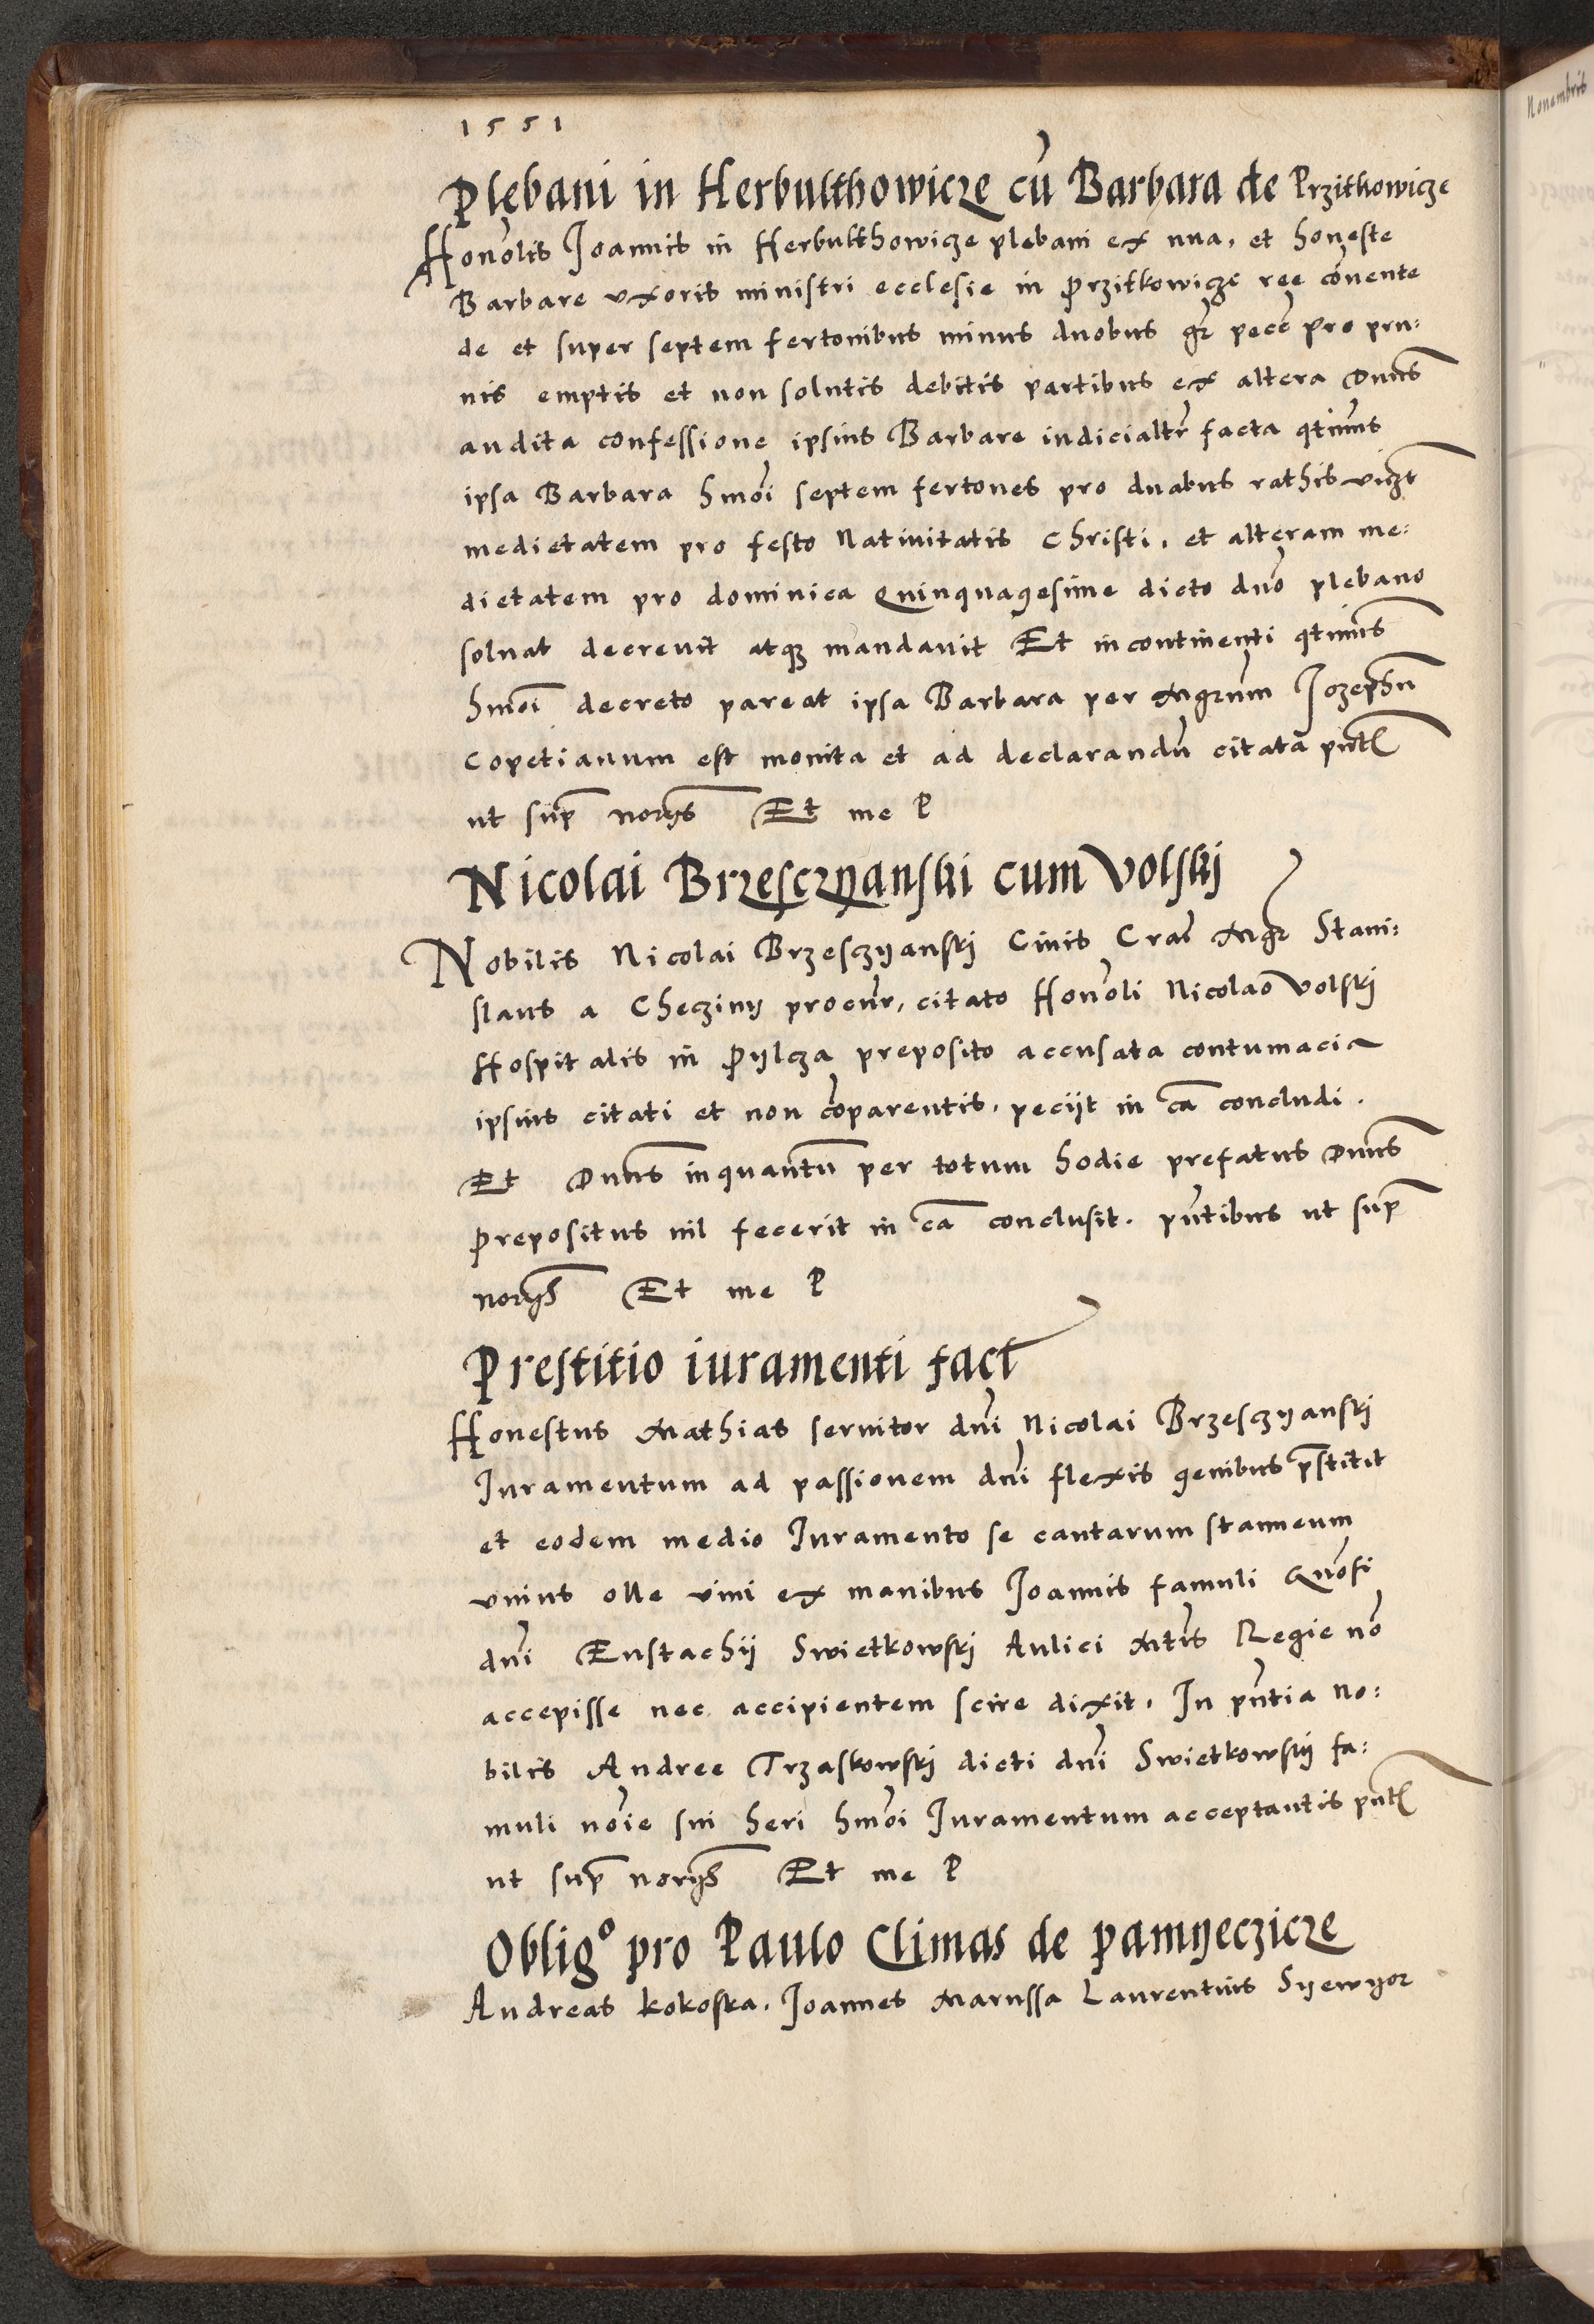 1551
Plebani in Herbulthowicze cū Barbara de Przithkowicze
Honōlis Joannis in Herbulthowicze plebani ex una, et honeste
Barbare uxoris ministri ecclesie in Przitkowicze ree cōnente
de et super septem fertonibus minus duobus gr pecc̄ pro pru:
nis emptis et non solutis debitis partibus ex altera Dnūs
audita confessione ipsius Barbare iudicialtr̄ facta qtinūs
ipsa Barbara hmōi septem fertones pro duabus rathis vidzt
medietatem pro festo Nativitatis Christi, et alteram me:
dietatem pro dominica Quinquagesime dicto dnō plebano
solvat decrevit atq3 mandavit Et incontinenti qtinūs
hmōi decreto pareat ipsa Barbara per Mgrum Jozephū
Copetianum est monita et ad declarandū citata pntē
ut sup̄ norijs Et me P
Nicolai Brzesczyanski cum Volskij
Nobilis Nicolai Brzesczyanskj Civis Crac̄ Mgr Stani:
slaus a Checziny procūr, citato Honōli Nicolao Volskj
Hospitalis in Pylcza preposito accusata contumacia
ipsius citati et non cōparentis, peciit in cā concludi.
Et Dnūs inquantū per totum hodie prefatus Dnūs
prepositus nil fecerit in cā conclusit. pn̄tibus ut sup̄
norijs Et me P
Prestitio iuramenti fact
Honestus Mathias servitor dnī Nicolai Brzesczyanskj
Iuramentum ad passionem dnī flexis genibus pr̄stitit
et eodem medio Iuramento se cantarum stanneum
unius olle vini ex manibus Joannis famuli Gnōsi
dnī Eustachij Swietkowskj Aulici Mtīs Regie nō
accepisse nec accipientem scire dixit, In pn̄tia no:
bilis Andree Trzaskowskj dicti dnī Swietkowskij fa:
muli noīe sui heri hmōi Iuramentum acceptantis pntē
ut sup̄ norijs Et me P
Obligº pro Paulo Climas de pamyeczicze
Andreas Kokoska, Joannes Marussa Laurentius Syewyor
Novembris